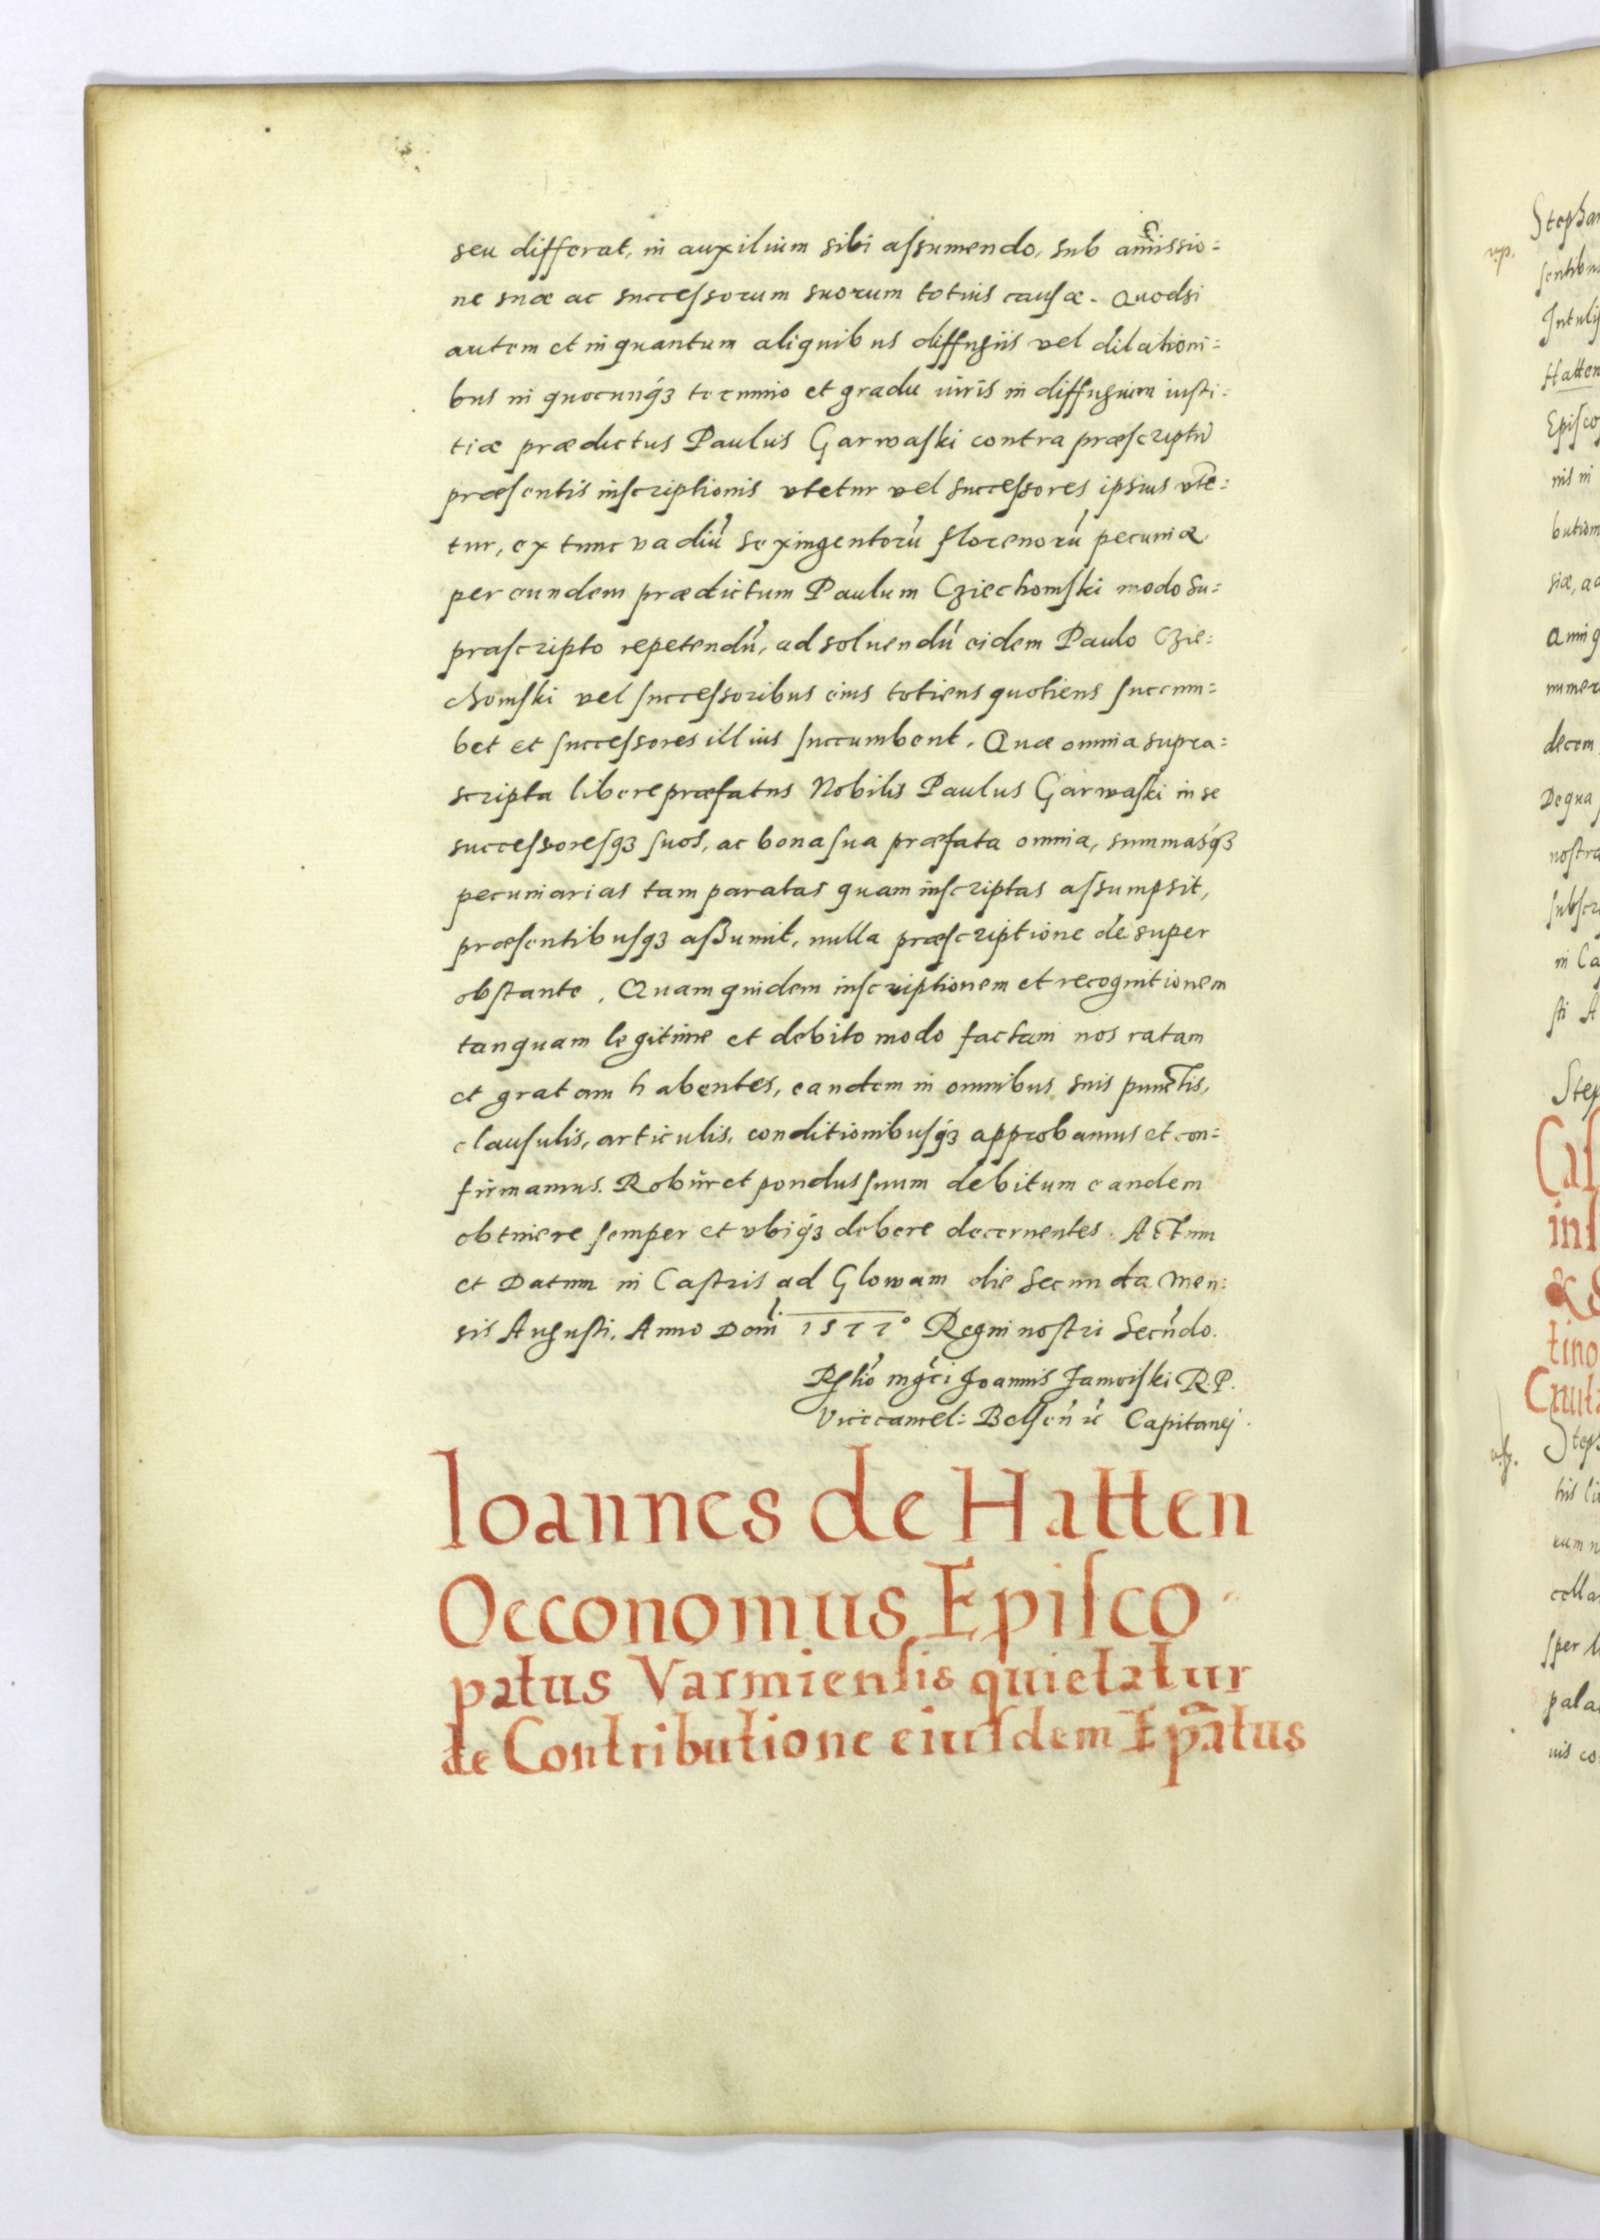 seu differat, in auxilium sibi aſsumendo, sub amissio=
ne suæ ac succeſsorum suorum totius cauſæ. Quodsi
autem et in quantum aliquibus diffugiis vel dilationi=
bus in quocunq́ꝫ termino et gradu iuris in diffugium iuſti=
tiæ prædictus Paulus Garwaſki contra præſcriptũ
præſentis inſcriptionis vtetur vel succeſsores ipsius vte=
tur, ex tunc vadiũ sexingentorũ florenorũ pecuniæ
per eundem prædictum Paulum Cziechomſki modo su=
praſcripto repetendũ, ad soluendũ eidem Paulo Czie=
chomſki vel ſucceſsoribus eius totiens quotiens ſuccum=
bet et ſucceſsores illius ſuccumbent. Quæ omnia supra=
scripta libere præfatus Nobilis Paulus Garwaſki in se
succeſsoreſqꝫ ſuos, ac bona ſua præfata omnia, summasq́ꝫ
pecuniarias tam paratas quam inſcriptas aſsumpsit,
præſentibuſqꝫ aſsumit, nulla præſcriptione de super
obstante. Quam quidem inſcriptionem et recognitionem
tanquam legitime et debito modo factam nos ratam
et gratam habentes, eandem in omnibus suis punctis,
clauſulis, articulis, conditionibuſq́ꝫ approbamus et con=
firmamus. Robur et pondus ſuum debitum eandem
obtinere ſemper et vbiq́ꝫ debere decernentes. Actum
et Datum in Caſtris ad Glowam die Secunda Men=
sis Auguſti. Anno Domĩ 1577° Regni nostri Secũdo.
Rſtiõ mgc̃i Joannis Zamoiſki R. P.
Vicecancel: Belſeñ ẽc Capitanej.
Ioannes de Hatten
Oeconomus Epiſco
patus Varmienſis quietatur
de Contributione eiuſdem Ep̃atus
v.p.
Stephan
ſentibus
Intuliſ
Hatten
Epiſco
nis in
bution
siæ, ac
a ming
numer
decem
De qua
noſtra
ſubſcr
in Ca
ſti A
Step
Caſ
inſ
& S
tino
Cruit
Step
his li
eum n
colla
ſper
pala
nis co